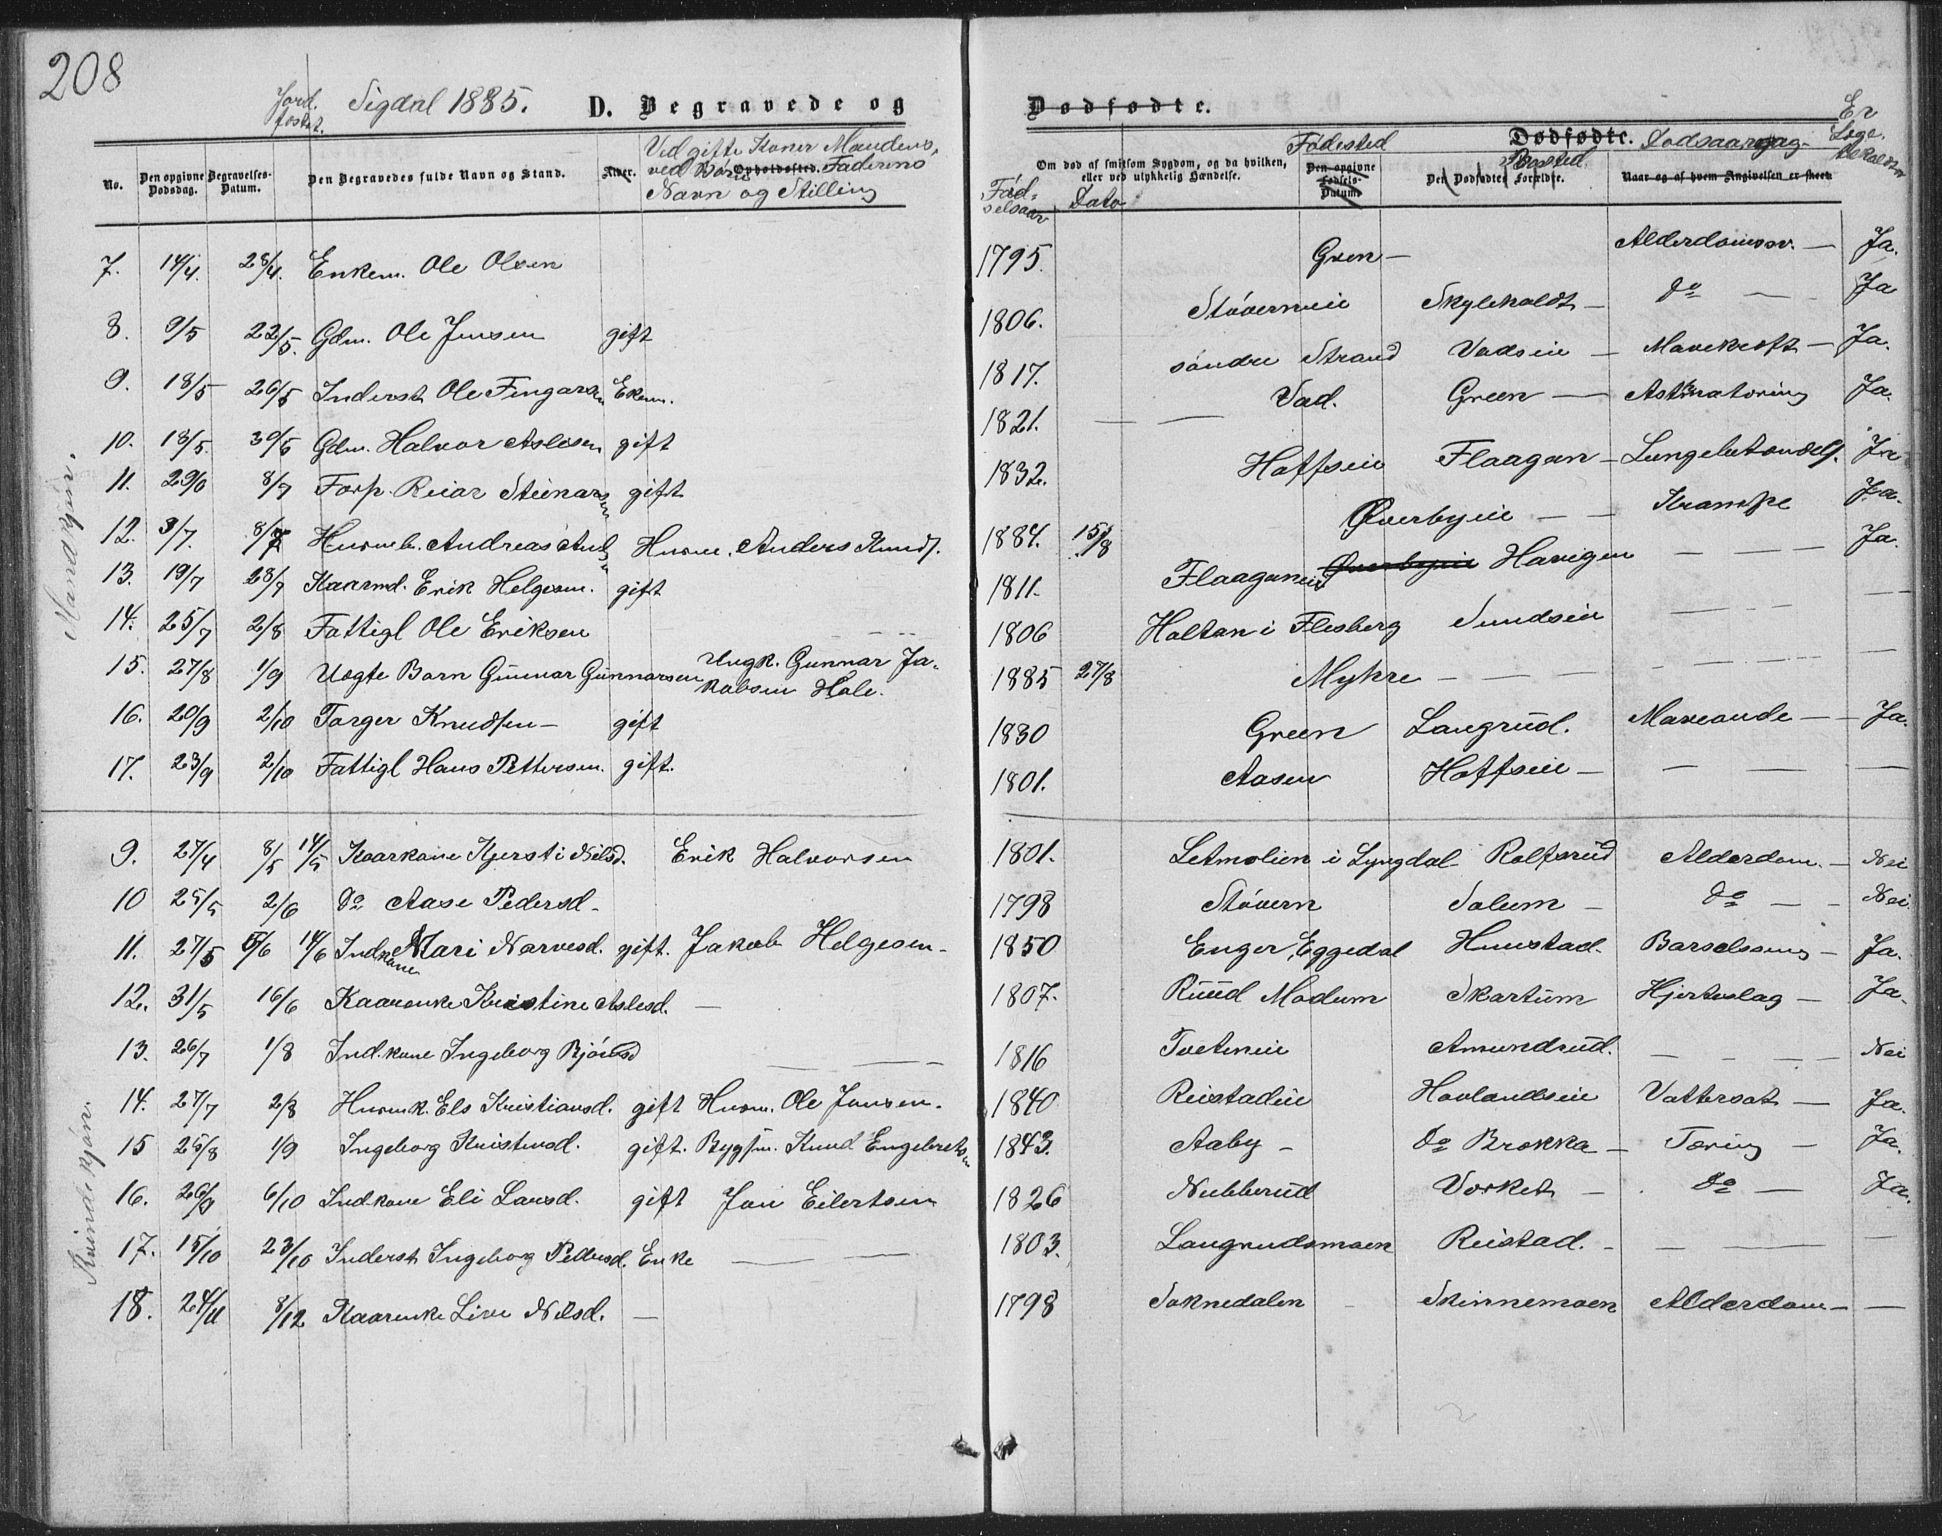 208
Jordfæstet. Sigdal 1885. D. Begravede og Dødfødte.
No. Den opgivne Dødsdag. Begravelses-Datum. Den Begravedes fulde Navn og Stand. Alder. Opholdssted.
Ved gifte Koner Mandens, ved Børn Faderens Navn og Stilling
Fødselsaar Dato
Om død af smitsom Sygdom, og da hvilken, eller ved ulykkelig Hændelse.
Fødested Den opgivne Fødsels-Datum.
Dødfødte. Bosted Den Dødfødtes Forældre.
Dødsaarsag Naar og af hvem Angivelsen er skeet.
Er Læge
Mandkjøn.
7. 14/4. 28/4. Enkem. Ole Olsen 1795. Gren — Alderdomssv. — Ja.
8. 9/5 22/5. Gdm. Ole Jensen gift 1806. Støverneie Skylekoldt — do — Ja
9. 18/5 26/5 Inderst Ole Fingarsen Ekem. 1817. søndre Strand Vadseie — Mavekræft — Ja.
10. 18/5. 30/5 Gdm. Halvor Aslesen gift 1821. — — Vad. Green — Asthmatoring Ja.
11. 29/6 8/7 Forp. Reiar Steinarsen gift 1832. Hoffseie Flaagan — Lungebetændels. Ja
12. 3/7. 8/7 Husmb. Andreas And Husm. Anders Knuds. 1884. 15/8 Øverbyeie — — Krampe Ja.
13. 19/7 28/7 Kaarmd. Erik Helgesen. gift 1811. Flaaganeie Øverbyeie Havigen — — — Ja.
14. 25/7 2/8 Fattigl Ole Eriksen 1806 Holtan i Flesberg Sundseie — — — —
15. 27/8 1/9 Uægte Barn Gunnar Gunnarsen Ungk. Gunnar Jakobsen Hole. 1885 27/8 Mykre — — — — — — —
16. 20/9 2/10 Torger Knudsen — gift 1830 Green Langrud. Maveonde — Ja.
17. 23/9 2/10 Fattigl Hans Pettersen. gift. 1801. Aasen Hoffseie — — — — —
Kvindekjøn.
9. 27/4 8/5 14/5 Kaarkone Kjersti Nilsd. Erik Halvorsen 1801. Letmolien i Lyngdal Rolfsrud Alderdom. — Nei
10 25/5 2/6 do Aase Pedersd — 1798 Støvern Solum — do — — Nei.
11. 27/5 5/6 14/6 Indkone Mari Narvesd. gift. Jakob Helgesen — 1850 Enger, Eggedal Hunstad. Barselseng — Ja.
12. 31/5 16/6 Kaarenke Kristine Aslesd. — 1807. Ruud Modum Skartum Hjerteslag — Ja.
13. 26/7 1/8 Ind.kone Ingeborg Bjørnsd — — — 1816 Tveteneie Amundrud. — — — — Nei
14. 27/7 2/8 Husmk. Els Kristiansd. gift Husm. Ole Jonsen. 1840 Reistadeie Hovlandseie Vattersot — Ja.
15 25/8 1/9 Ingeborg Knistensd. gift. Bygsm. Knud Engebretsen 1843. Aaby — do Brokka — Tæring — Ja.
16. 26/9 6/10 Ind.kone Eli Larsd. gift Jon Eilertsen 1826 Nubberud Vorket — do — Ja.
17. 15/10 23/10 Inderst Ingeborg Pedersd. Enke — — 1803. Langrudsmoen Reistad. — — — —
18. 24/11 8/12 Kaarenke Live Nilsd. — 1798 Soknedalen — Skinnemoen Alderdom — —